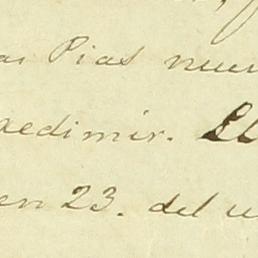 as Pias nue
redimir. El
en 23. del u